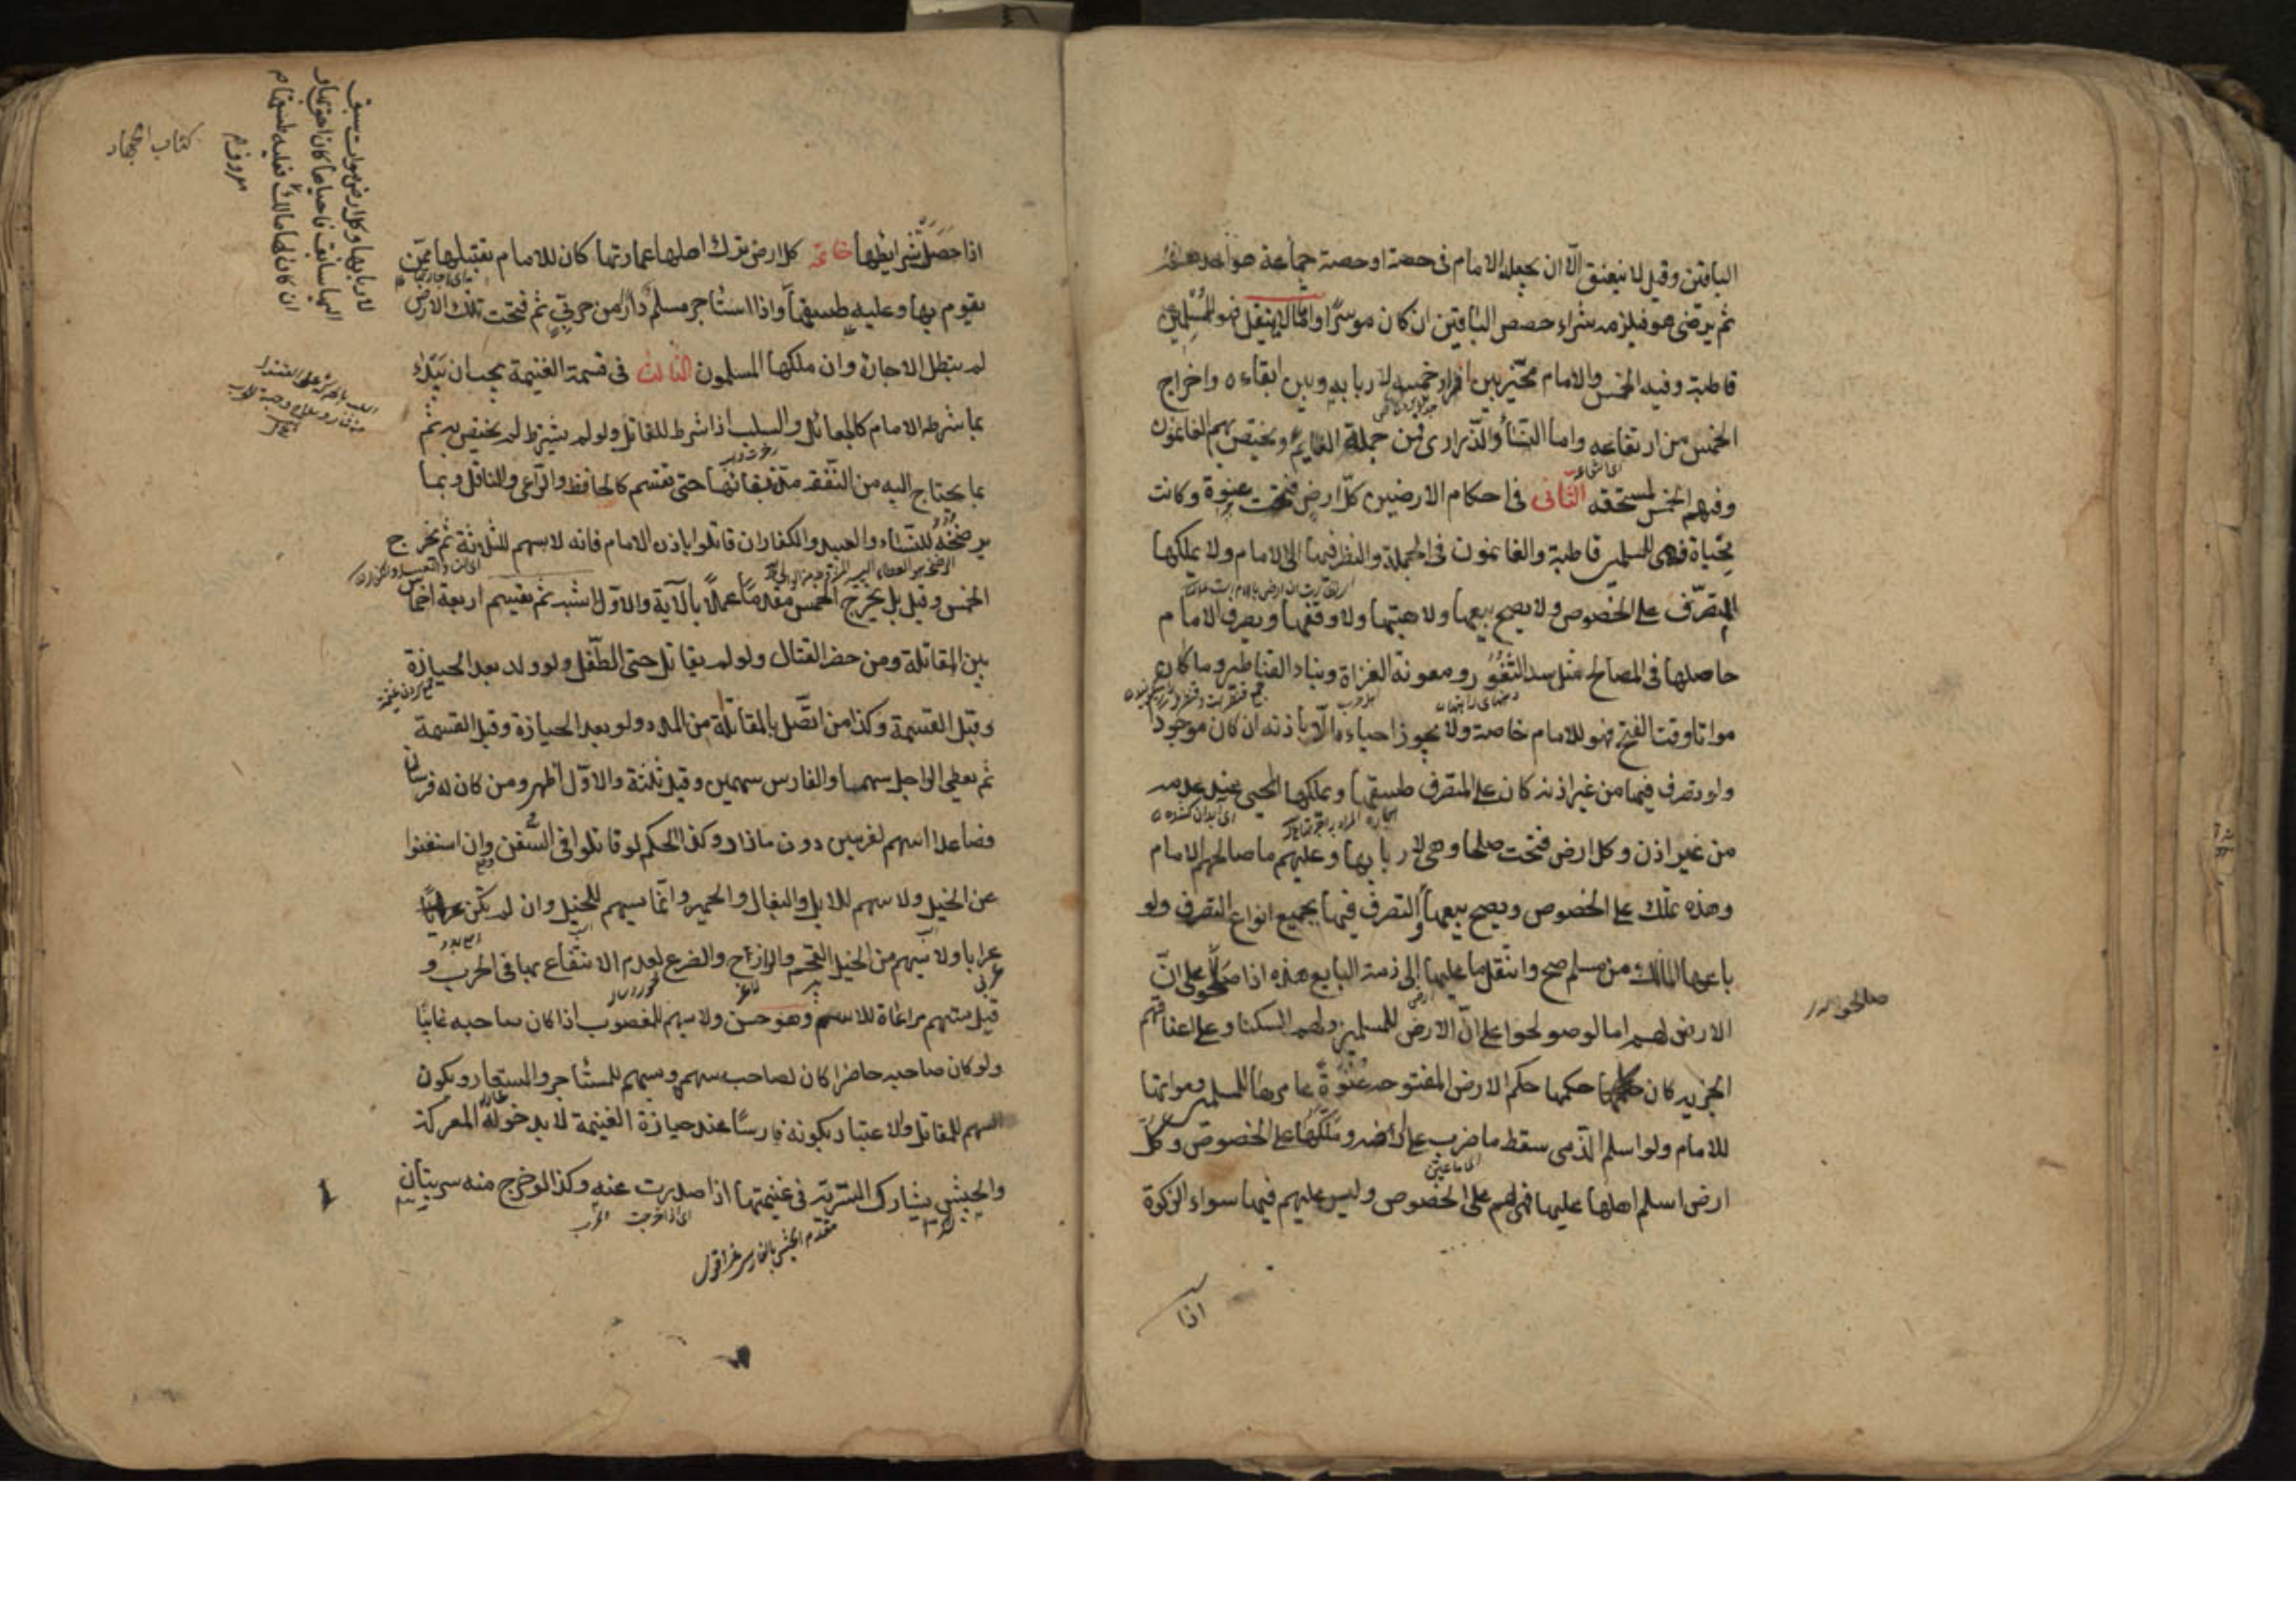 الباقين وقيل لا ينعتق الا ان يجعله الامام فى حصته او حصة جماعة هو احدهم
ثم يرضى هو فيلزمه شراء حصص الباقين ان كان موسرا واما لا ينقل فهو للمسلمين
قاطبة وفيه الخمس والامام مخير بين افراز خمسه لاربابه وبين ابقاءه واخراج
الخمس من ارتفاعه واما النساء والذرارى فمن جملة الغنايم ويختص بهم الغانمون
وفيهم الخمس لمستحقه الثانى فى احكام الارضين كل ارض فتحت عنوة وكانت
محياة فهى للمسلمين قاطبة والغانمون فى الجملة والنظر فيها الى الامام ولا يملكها
المتصرف على الخصوص ولا يصح بيعها ولا هبتها ولا وقفها ويصرف الامام
حاصلها فى المصالح مثل سد الثغور ومعونة الغزاة وبناء القناطر وما كان
مواتا وقت الفتح فهو للامام خاصة ولا يجوز احياءه الا باذنه ان كان موجودا
ولو تصرف فيها من غير اذنه كان على المتصرف طسقها ويملكها المحيى عند عدمه
من غير اذن وكل ارض فتحت صلحا فهى لاربابها وعليهم ما صالحهم الامام
وهذه تملك على الخصوص ويصح بيعها والتصرف فيها بجميع انواع التصرف ولو
باعها المالك من مسلم صح وانتقل ما عليها الى ذمة البايع هذه اذا صولحوا على ان
الارض لهم اما لو صولحوا على ان الارض للمسلمين ولهم السكنا وعلى اعناقهم
الجزيه كان حكمها حكم الارض المفتوحه عنوة عامرها للمسلمين ومواتها
للامام ولو اسلم الذمى سقط ما ضرب على ارضه وملكها على الخصوص وكل
ارض اسلم اهلها عليها فهى لهم على الخصوص وليس عليهم فيها سواء الزكوة
صالحوا
اذا
كتاب الجهاد
لاربابها وكل ارض موات سبق
اليها سابق فاحياها كان احق بها و
ان كان لها مالك فعليه طسقها م
اذا حصل شرايطها خاتمة كل ارض ترك اهلها عمارتها كان للامام تقبيلها ممن
يقوم بها وعليه طسقها واذا استأجر مسلم دارا من حربى ثم فتحت تلك الارض
لم يبطل الاجارة وان ملكها المسلمون الثالث فى قسمة الغنيمة يجب ان يبدء
بما شرطه الامام كالجعائل والسلب اذا شرط للقاتل ولو لم يشرط لم يختص به ثم
بما يحتاج اليه من النفقه مدة بقائها حتى تقسم كالحافظ والراعى والناقل وبما
يرضخه للنساء والعبيد والكفار ان قاتلوا باذن الامام فانه لا سهم للثلاثة ثم يخرج
الخمس وقيل بل يخرج الخمس مقدما عملا بالآية والاول اشبه ثم تقسم اربعة اخماس
بين المقاتلة ومن حضر القتال ولو لم يقاتل حتى الطفل ولو ولد بعد الحيازة
وقبل القسمة وكذا من اتصل بالمقاتلة من المدد ولو بعد الحيازة وقبل القسمة
ثم يعطى الراجل سهما والفارس سهمين وقيل ثلثة والاول اظهر ومن كان له فرسان
فصاعدا اسهم لفرسين دون ما زاد وكذا الحكم لو قاتلوا فى السفن وان استغنوا
عن الخيل ولا سهم للابل والبغال والحمير وانما يسهم للخيل وان لم يكن
عرابا ولا يسهم من الخيل القحم والرازح والضرع لعدم الانتفاع بها فى الحرب و
قيل يسهم مراعاة للاسم وهو حسن ولا يسهم للمغصوب اذا كان صاحبه غايبا
ولو كان صاحبه حاضرا كان لصاحبه سهم وسهم للمستأجر والمستعار ويكون
السهم للمقاتل والاعتبار بكونه فارسا عند حيازة الغنيمة لا بدخوله المعركة
والجيش يشارك السرية فى غنيمتها اذا صدرت عنه وكذا لو خرج منه سريتان